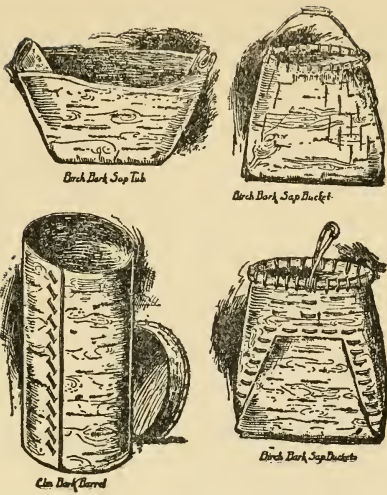 Birch Bark Sap Tub.
Birch Bark Sap Bucket.
Elm Bark Barrel
Birch Bark Sap Buckets